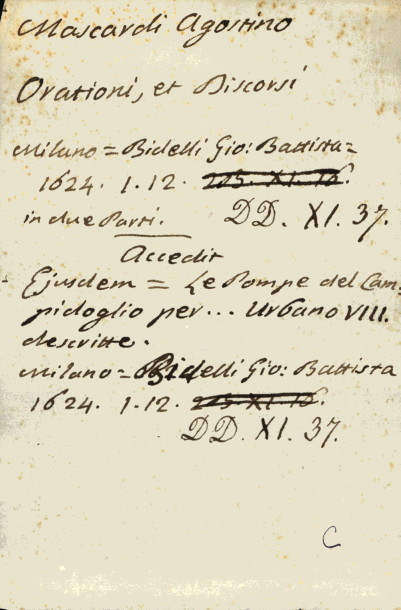 Mascardi Agostino
Orationi, et Discorsi
Milano = Bidelli Gio: Battista =
1624. 1.12. 225. XI. 16.
in due Parti.
DD. XI. 37.
Accedit
Ejusdem = Le Pompe del Cam=
pidoglio per... Urbano VIII.
descritte.
Milano = Bidelli Gio: Battista
1624. 1.12. 225. XI. 16.
DD. XI. 37.
C